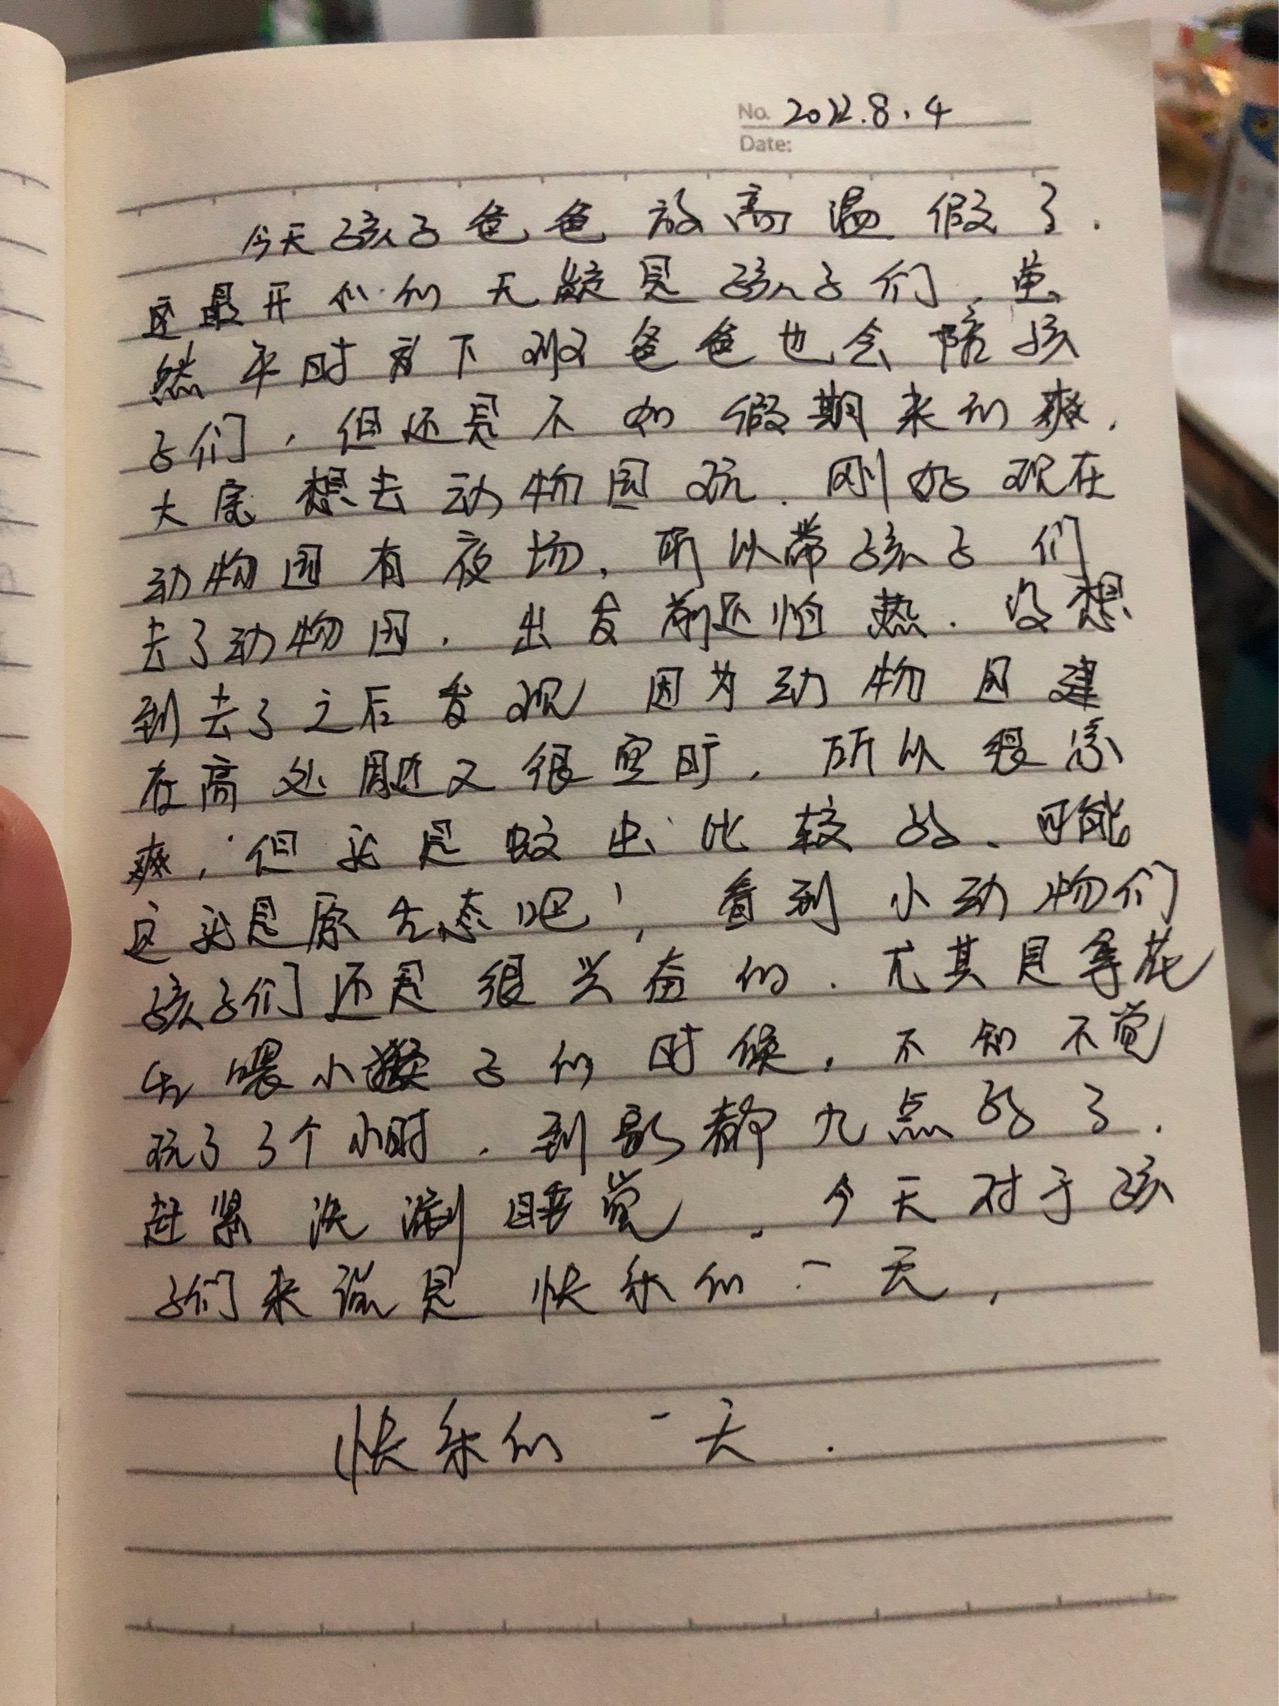 No. 2022.8.4
Date:
今天孩子爸爸放高温假了.
这最开心的无疑是孩子们,虽
然平时有下班爸爸也会陪孩
子们,但还是不如假期来的爽.
大宝想去动物园玩.刚好现在
动物园有夜场,所以带孩子们
去了动物园.出发前还怕热.没想
到去了之后发现因为动物园建
在高处周边又很空旷,所以很凉
爽,但就是蚊虫比较多、可能
这就是原生态吧!看到小动物们
孩子们还是很兴奋的.尤其是拿花
生喂小猴子的时候,不知不觉
玩了3个小时.到家都九点多了.
赶紧洗漱睡觉,今天对于孩
子们来说是快乐的一天,
快乐的一天.